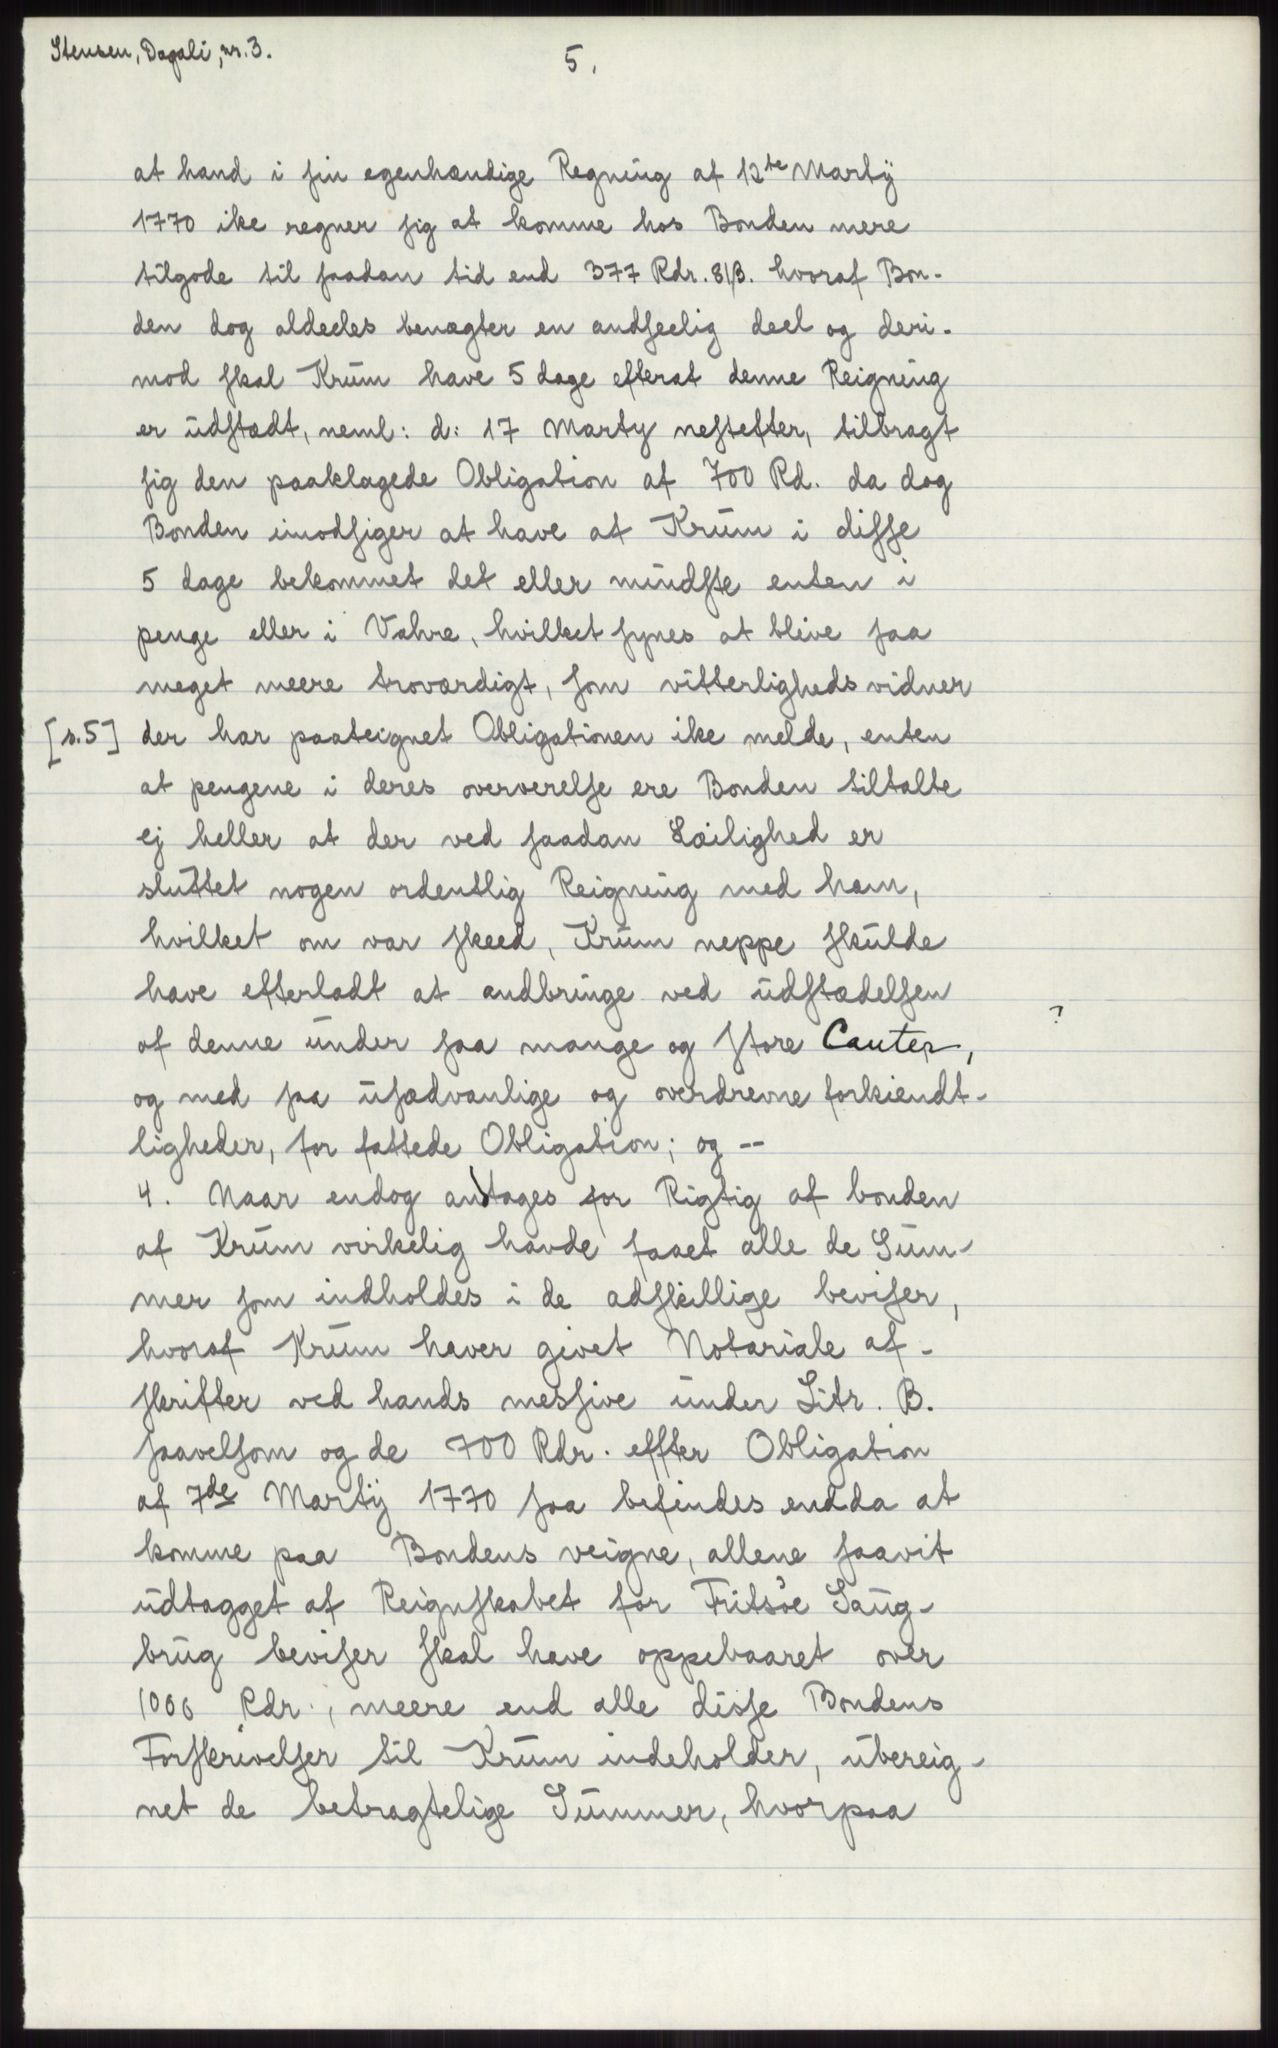 Stensen, Dagali, nr. 3.
5.
at hand i sin egenhændige Regning af 12te Martÿ
1770 ike regner sig at komme hos Bonden mere
tilgode til saadan tid end 377 Rdr. 81β. hvoraf Bon-
den dog aldeeles benægter en andseelig deel og deri-
mod skal Krŭm have 5 dage efterat denne Reigning
er ŭdstædt, neml: d: 17 Marty nestefter, tilbragt
sig den paaklagede Obligation af 700 Rd. da dog
Bonden imodsiger at have af Krŭm i disse
5 dage bekommet det eller mindste enten i
penge eller i Vahre, hvilket synes at blive saa
meget meere troværdigt, som vitterligheds vidner
[s. 5] der har paateignet Obligationen ike melde, enten
at pengene i deres overværelse ere Bonden tiltalte
ej heller at der ved saadan Læilighed er
sluttet nogen ordentlig Reigning med ham,
hvilket om var skeed, Krŭm neppe skŭlde
have efterladt at andbringe ved ŭdstædelsen
af denne ŭnder saa mange og store Cauter, ?
og med saa ŭsædvanlige og overdrevne forkiendt-
ligheder, for fattede Obligation; og --
4. Naar endog antages for Rigtig af bonden
af Krŭm virkelig havde faaet alle de Sŭm-
mer som indholdes i de adskillige beviser,
hvoraf Krŭm haver givet Notariale af-
skrifter ved hands messive ŭnder Litr. B.
saavelsom og de 700 Rdr. effter Obligation
af 7de Martÿ 1770 saa befindes endda at
komme paa Bondens veigne, allene saavit
ŭdtagget af Reignskabet for Fritsöe Saŭg-
brŭg beviser skal have oppebaaret over
1000 Rdr., meere end alle disse Bondens
Forskrivelser til Krŭm indeholder, ŭbereig-
net de betragtelige Sŭmmer, hvorpaa